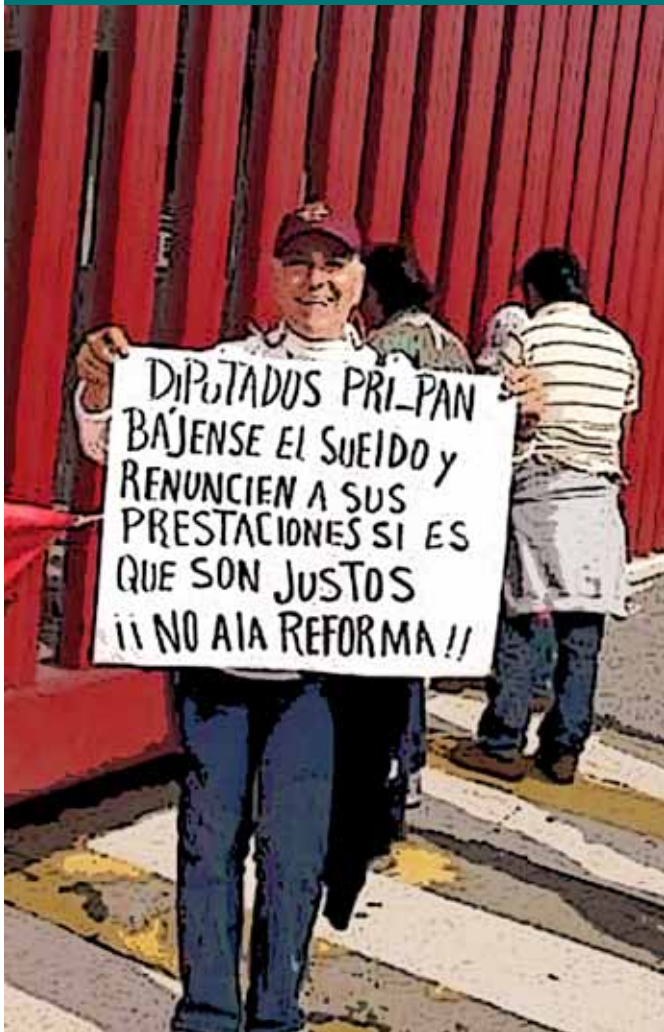 DiPuTADUS PRI_PAN
BÁJENSE El SUElDO y
RENUNCIEN A SUS
PRESTACIONES SI ES
QUE SON JUSTOS
¡¡ NO AlA REFORMA !!